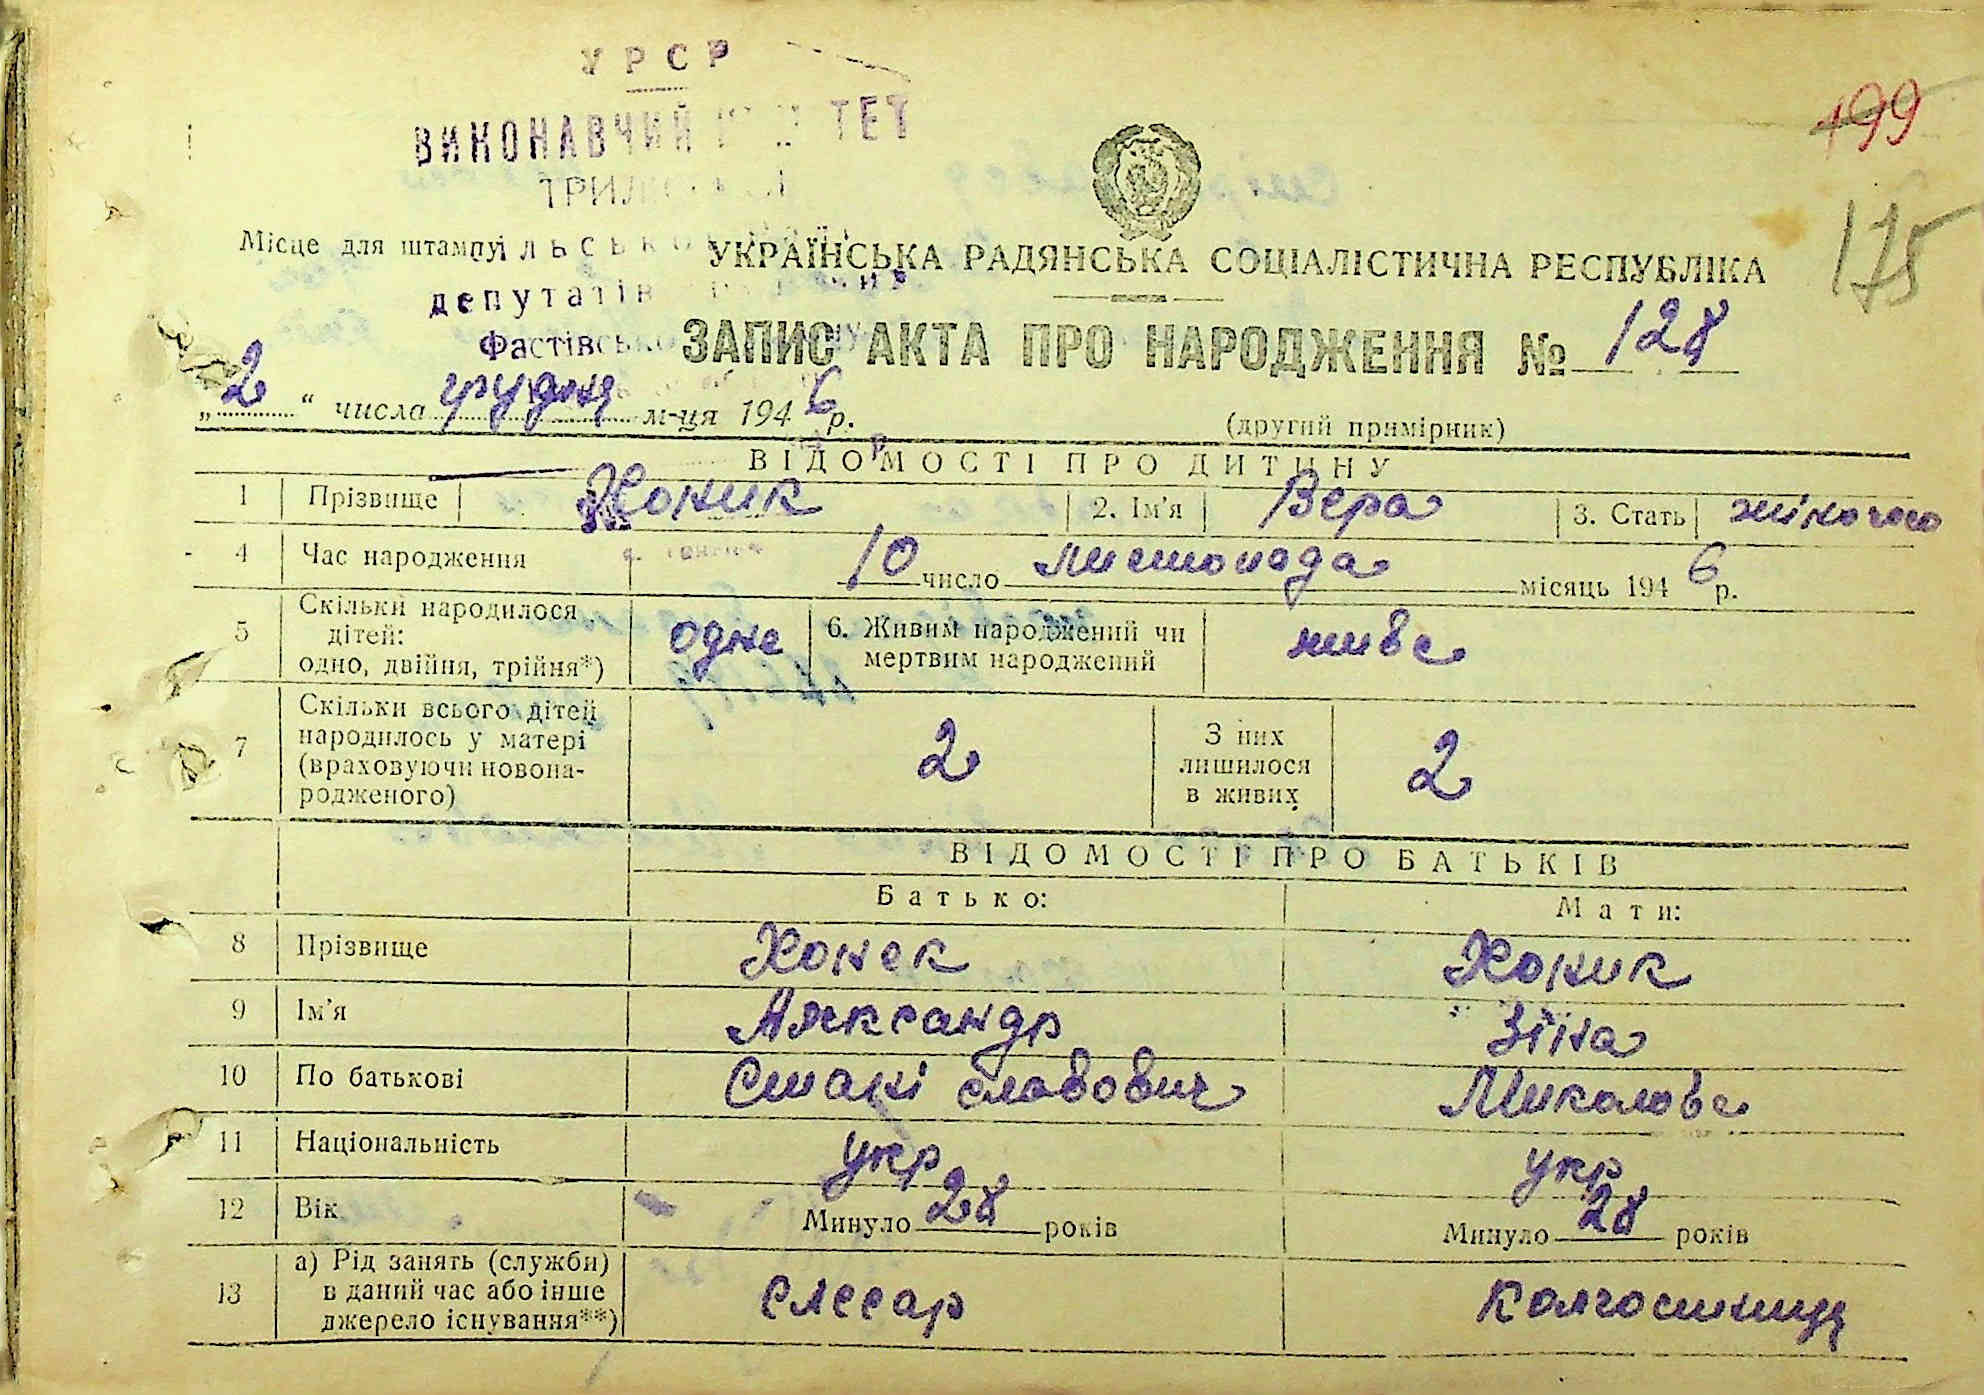 УРСР
ВИКОНАВЧИЙ
199
175
Місце для штампу
УКРАЇНСЬКА РАДЯНСЬКА СОЦІАЛІСТИЧНА РЕСПУБЛІКА
депутатів
ЗАПИС АКТА ПРО НАРОДЖЕННЯ № 128
„2“ числа грудня м-ця 1946 р.
(другий примірник)
ВІДОМОСТІ ПРО ДИТИНУ
1 Прізвище Хоник 2. Ім'я Вера 3. Стать жіночого
4 Час народження 10 число листопада місяць 1946 р.
5 Скільки народилося дітей: одно, двійня, трійня*) одне 6. Живим народжений чи мертвим народжений живе
7 Скільки всього дітей народилось у матері (враховуючи новонародженого) 2 З них лишилося в живих 2
ВІДОМОСТІ ПРО БАТЬКІВ
Батько: Мати:
8 Прізвище Хонек Хоник
9 Ім'я Александр Зіна
10 По батькові Стані славович Миколовна
11 Національність укр укр
12 Вік Минуло 28 років Минуло 28 років
13 а) Рід занять (служби) в даний час або інше джерело існування**) слесар